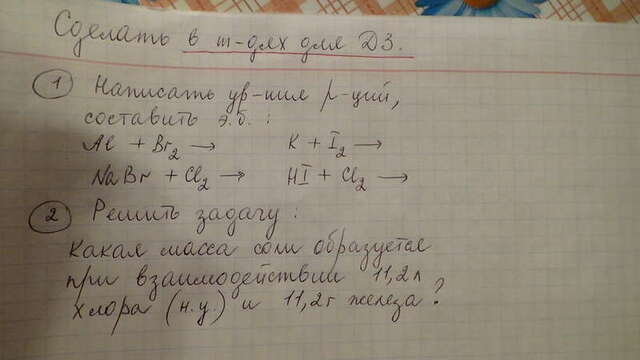 Сделать в т-дях для ДЗ.
① Написать ур-ния р-ций,
составить э.б. :
Al + Br₂ → K + I₂ →
NaBr + Cl₂ → HI + Cl₂ →
② Решить задачу :
Какая масса соли образуется
при взаимодействии 11,2л
хлора (н.у.) и 11,2г железа?